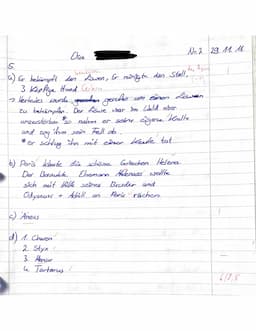 Nr. 2 29.11.16
5.
a) Er bekämpft den Löwen, Er reinigte den Stall,
3 köpfige Hund
Herkules wurde gerufen um einen Löwen
zu bekämpfen. Der Löwe war im Wald aber
unzerstörbar so nahm er seine eigene Kralle
und zog ihm sein Fell ab.
* er schlug ihn mit einer Keule tot
b) Paris klaute die schöne Gutachen Helena.
Der Ehemann Menelaos wollte
sich mit Hilfe seines Bruder und
Odysseus + Achill an Paris rächen.
c) Aneas
d) 1. Charon
2. Styx
3.
4. Tartarus